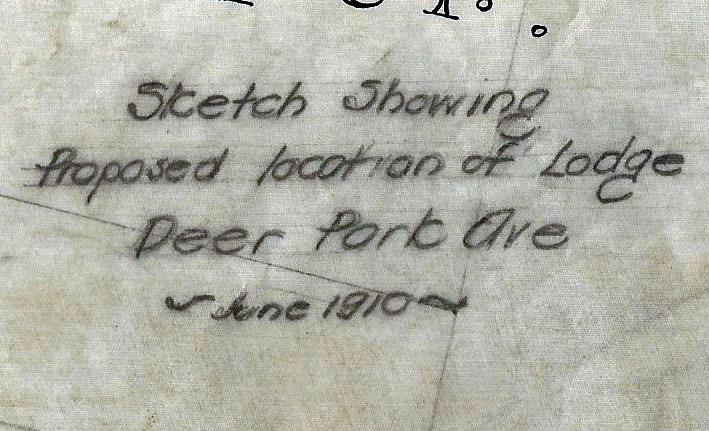 Sketch Showing
Proposed location of Lodge
Deer Park Ave
~ June 1910 ~